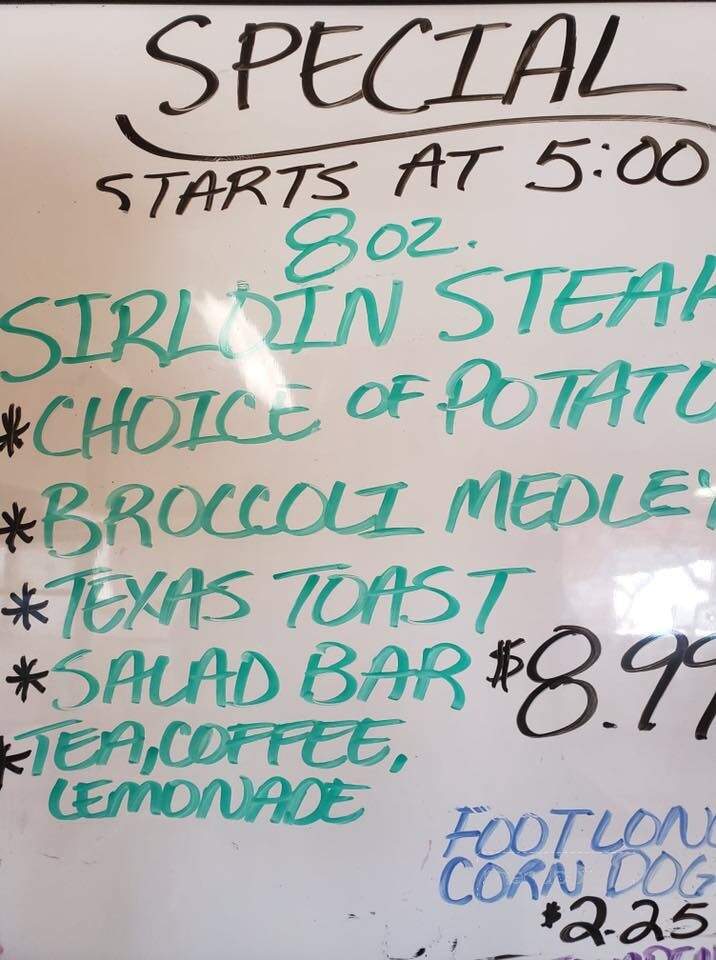 SPECIAL
STARTS AT 5:00
8 oz.
SIRLOIN STEAK
*CHOICE OF POTATO
*BROCCOLI MEDLEY
*TEXAS TOAST
*SALAD BAR $8.99
*TEA, COFFEE,
LEMONADE
FOOTLONG
CORN DOG
$2.25